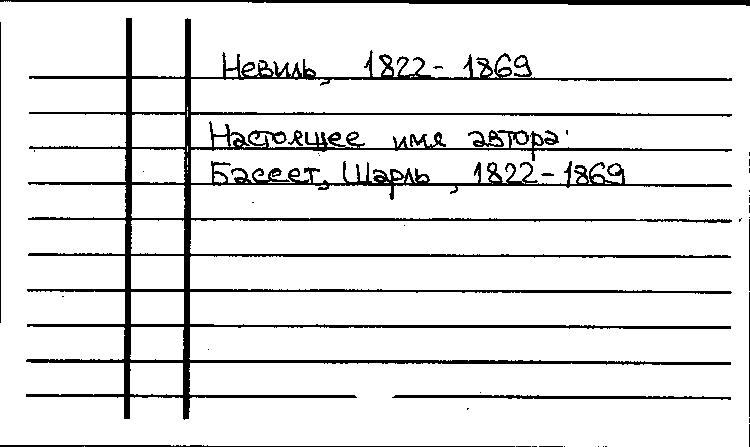 Невиль, 1822 - 1869
Настоящее имя автора:
Бассет, Шарль, 1822 - 1869